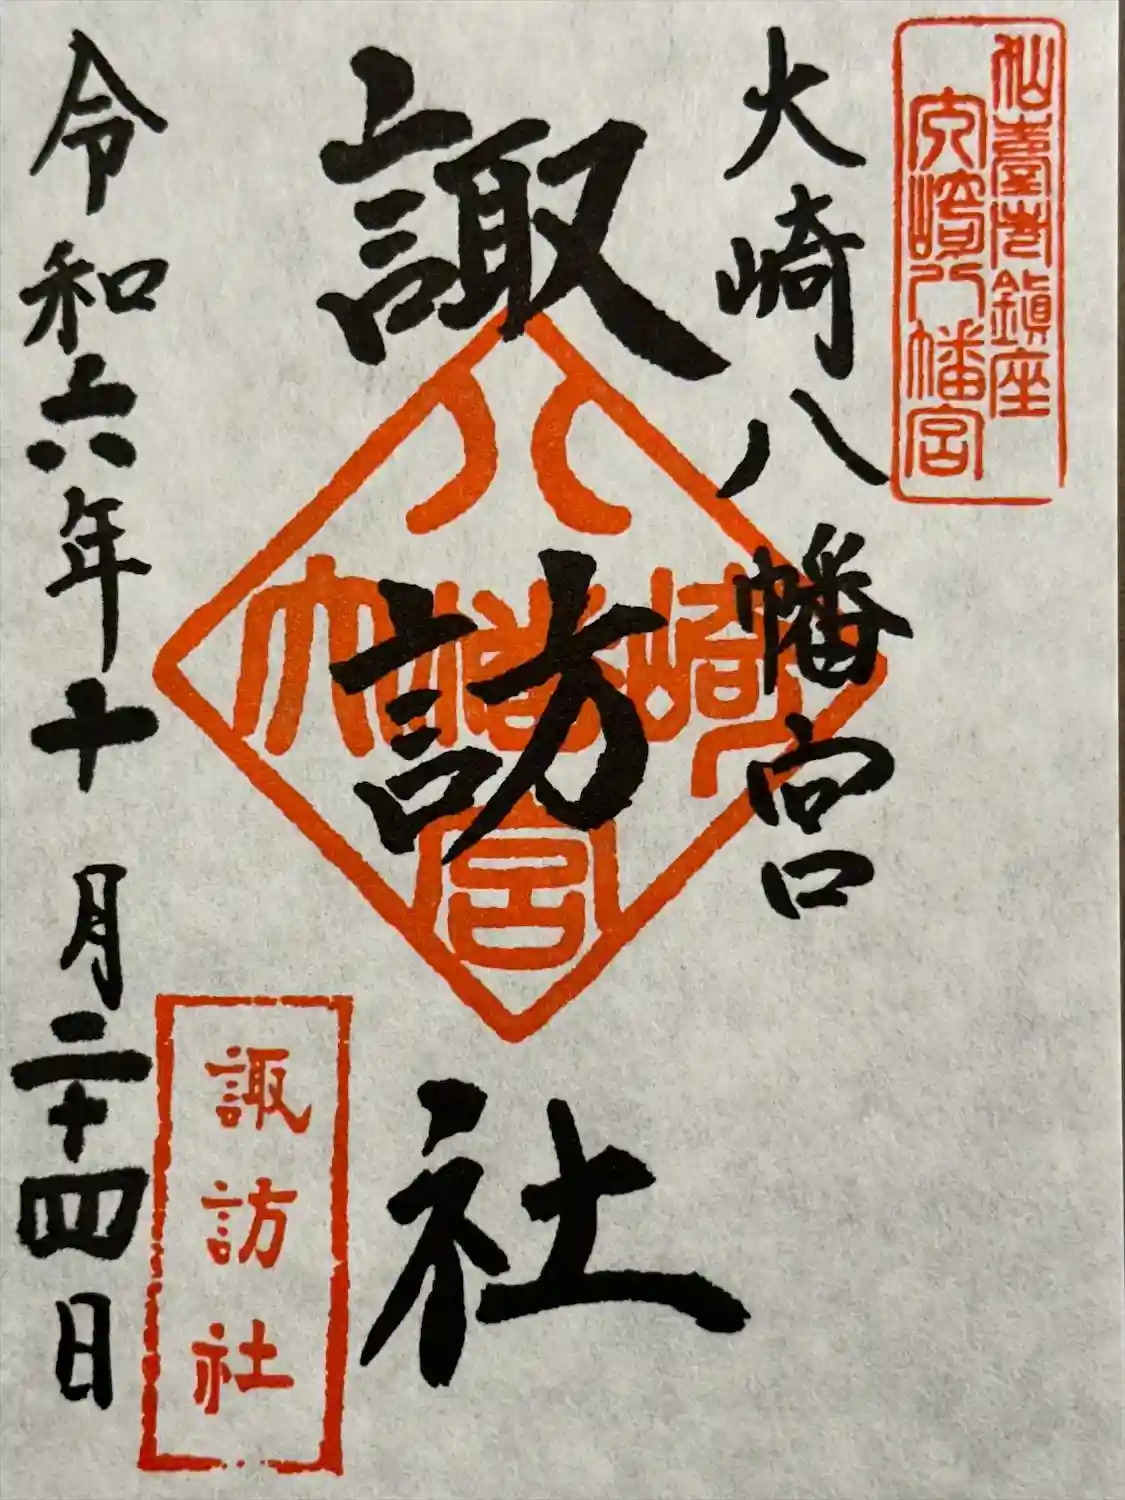 仙臺总鎮座
大崎八幡宮
大崎八幡宮
諏訪社
八幡宮
大崎
諏訪社
令和六年十月二十四日